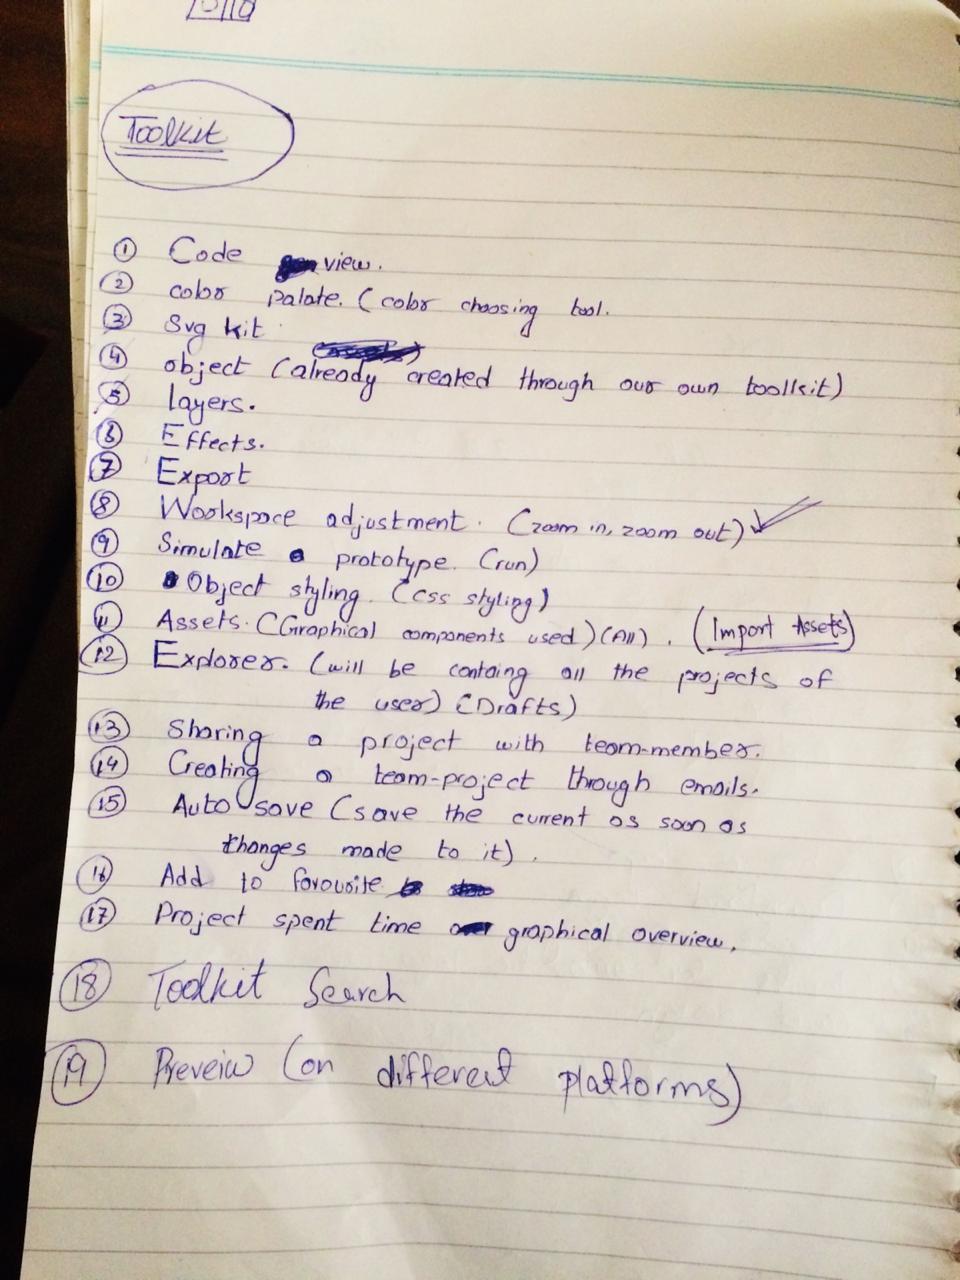 Toolkit
1 Code view.
2 color palate. (color choosing tool.
3 Svg kit
4 object (already created through our own toolkit)
5 layers.
6 Effects.
7 Export
8 Workspace adjustment. (zoom in, zoom out)
9 Simulate prototype. (run)
10 Object styling. (css styling)
11 Assets. (Graphical components used) (All). (Import Assets)
12 Explorer. (will be containg all the projects of
the user) (Drafts)
13 Sharing a project with team-member.
14 Creating a team-project through emails.
15 Auto save (save the current as soon as
changes made to it).
16 Add to favourite
17 Project spent time graphical overview.
18 Toolkit Search
19 Preveiw (on different platforms)